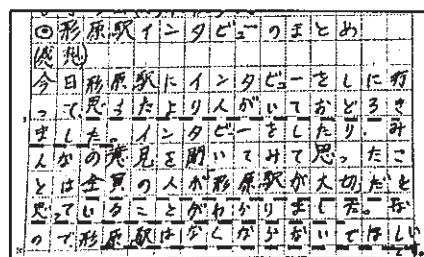 ◎形原駅インタビューのまとめ
(感想)
今日形原駅にインタビューをしに行
って、思ったより人がいておどろき
ました。インタビーをしたり、み
んなの意見を聞いてみて思ったこ
とは全員の人が形原駅が大切だと
思っていることがわかりました。な
ので形原駅はなくならないでほしい
です。